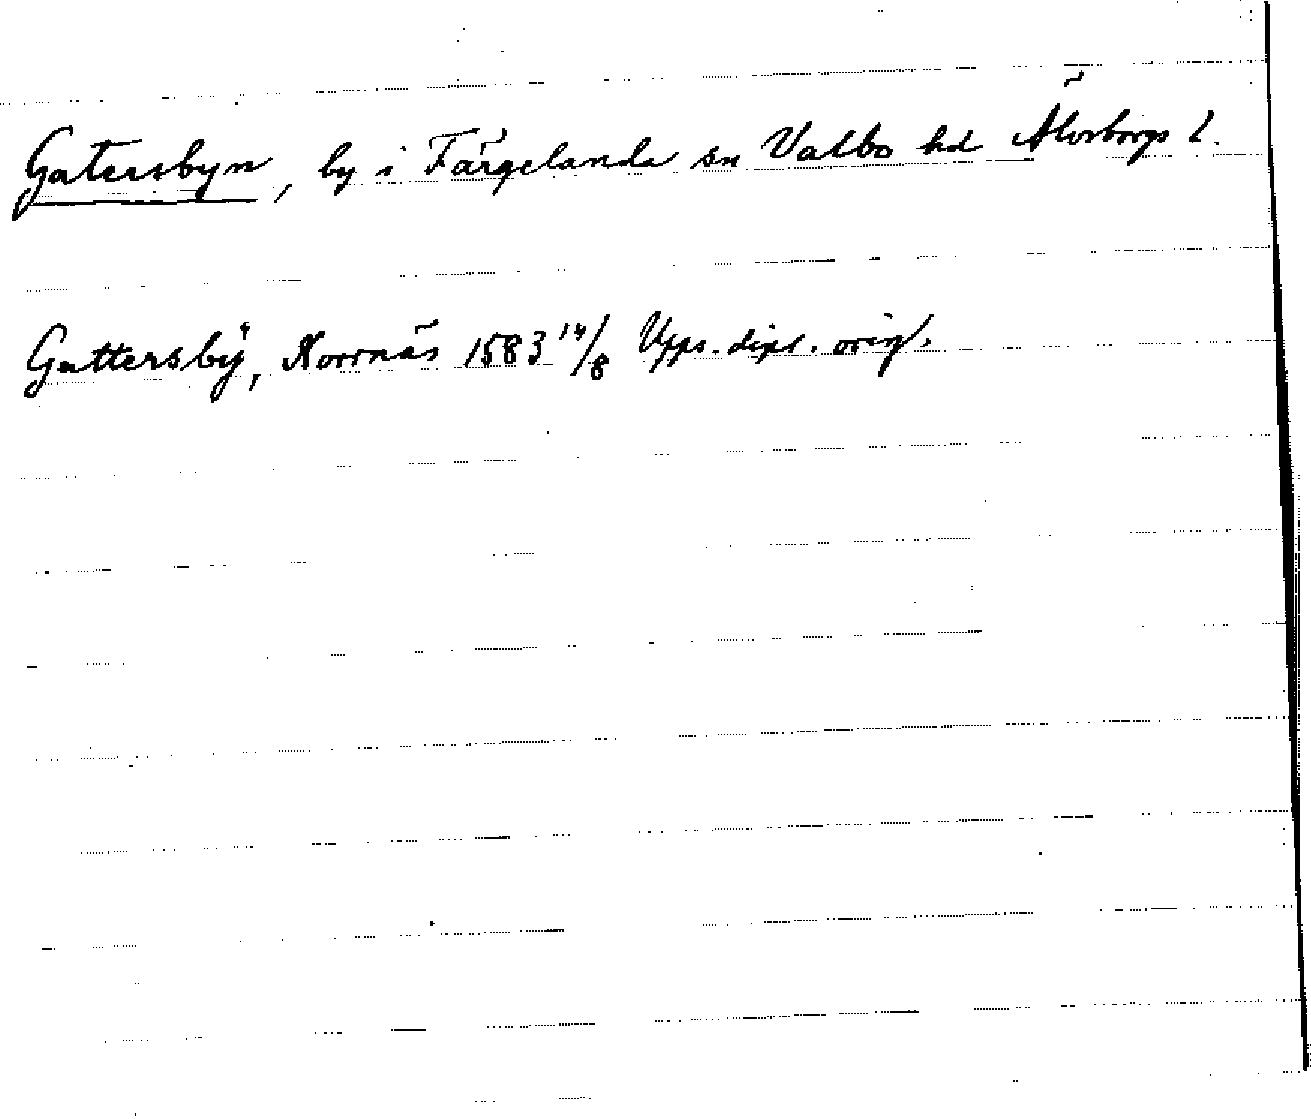 Gatersbyn, by i Färgelanda sn Valbo hd Älvsborgs l.
Gattersbÿ, Norrnäs 1583 14/8 Upps. dipl. orig.